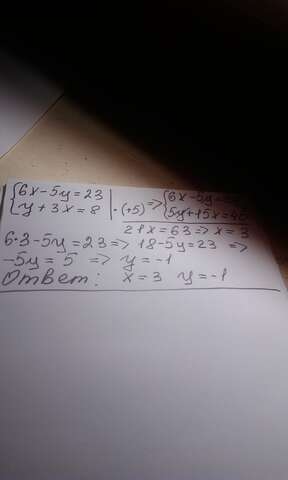 {6x-5y=23 | => {6x-5y=
{y+3x=8 | ·(+5) {5y+15x=40
21x=63=> x=3
6·3-5y=23=> 18-5y=23 =>
-5y=5 => y=-1
Ответ: x=3 y=-1